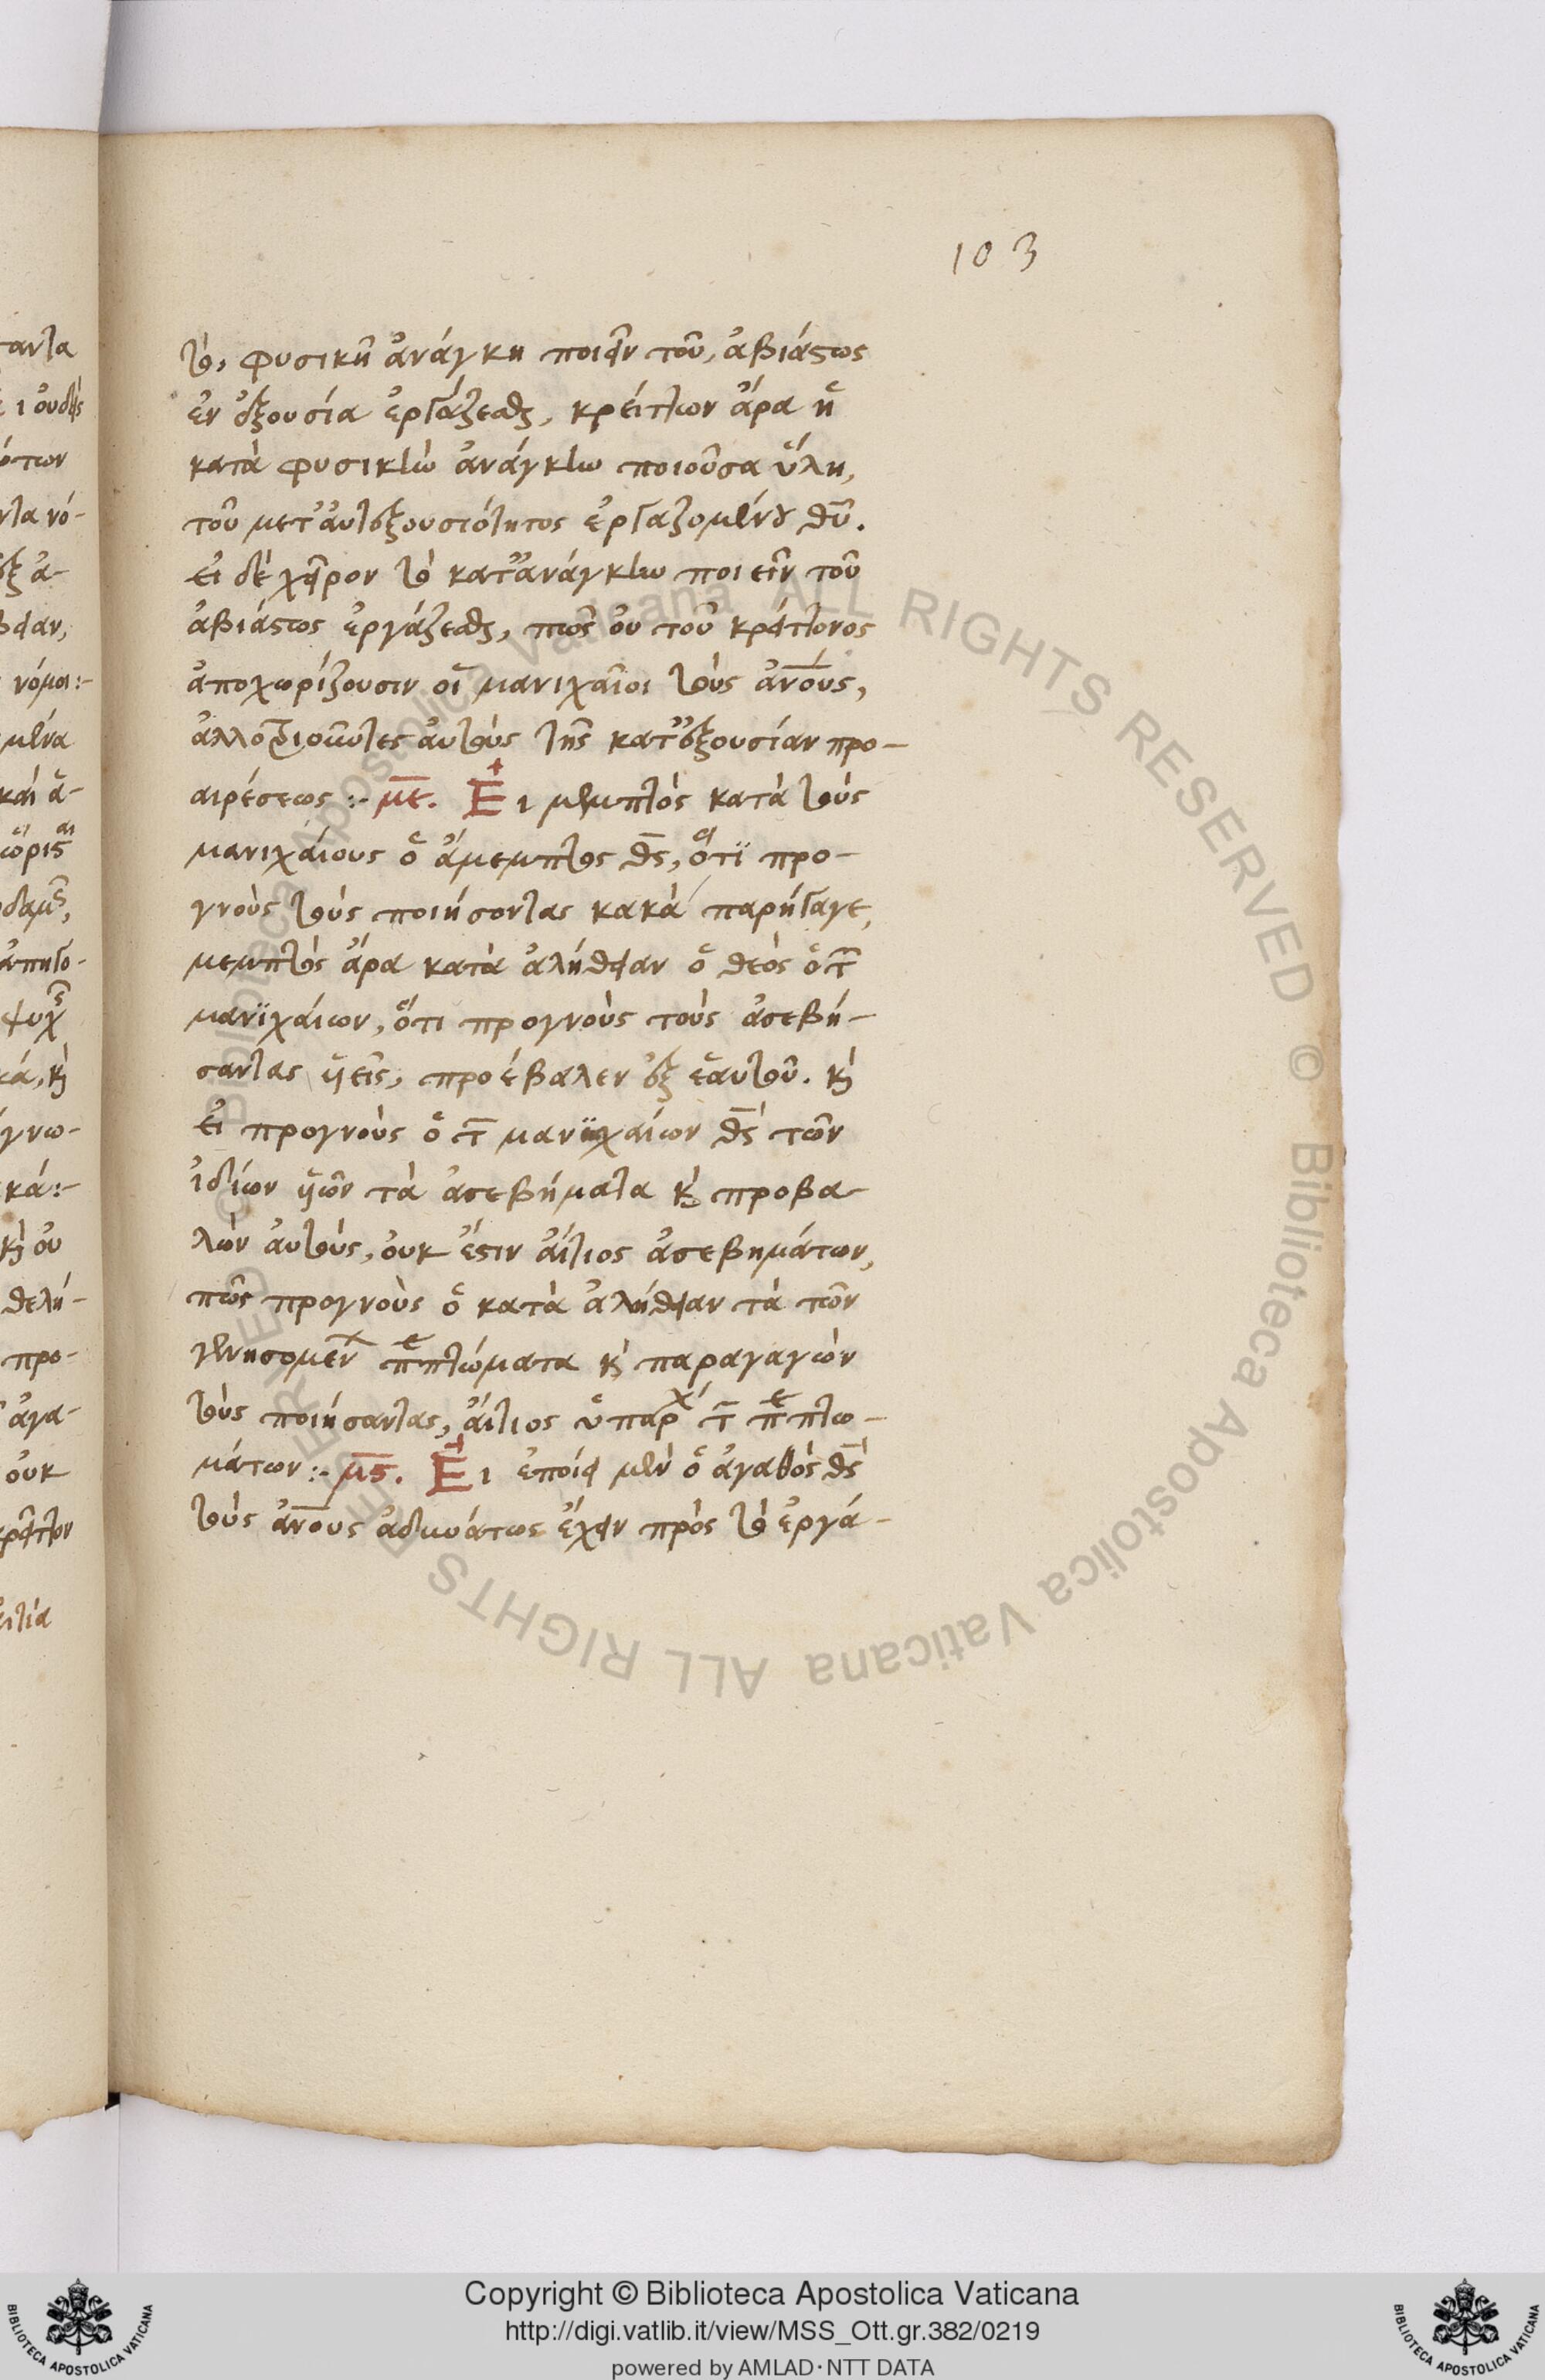 103
τὸ, φυσικῆ ἀνάγκη ποιεῖν τοῦ, ἀβιάστως
ἐν ἐξουσία ἐργάζεσθαι, κρεῖττων ἄρα ἡ
κατὰ φυσικὴν ἀνάγκην ποιοῦσα ὕλη,
τοῦ μετ' αὐτεξουσιότητος ἐργαζομένου θυ̅.
εἰ δὲ χεῖρον τὸ κατ' ἀνάγκην ποιεῖν τοῦ
ἀβιάστως ἐργάζεσθαι, πῶς οὐ τοῦ κρείττονος
ἀποχωρίζουσιν οἱ μανιχαῖοι τοὺς ἀνο̅υς,
ἀλλοτριοῦντες αὐτοὺς τῆς κατ' ἐξουσίαν προ-
αιρέσεως :- με̅. Εἰ μεμπτὸς κατὰ τοὺς
μανιχαίους ὁ ἄμεμπτος θς̅, ὅτι προ-
γνοὺς τοὺς ποιήσοντας κακὰ παρήγαγε,
μεμπτὸς ἄρα κατὰ ἀλήθειαν ὁ θεὸς ὁ τ̅
μανιχαίων, ὅτι προγνοὺς τοὺς ἀσεβή-
σαντας υἱεῖς, προέβαλεν ἐξ ἑαυτοῦ. κὶ
εἰ προγνοὺς ὁ τ̅ μανιχαίων θς̅ τῶν
ἰδίων υἱῶν τὰ ἀσεβήματα κὶ προβα-
λὼν αὐτοὺς, οὐκ ἔστιν αἴτιος ἀσεβημάτων,
πῶς προγνοὺς ὁ κατὰ ἀλήθειαν τὰ τῶν
γεννησομένων πταίσματα κὶ παραγαγὼν
τοὺς ποιήσαντας, αἴτιος ὑπάρχει τ̅ π̅πτω-
μάτων :- μς̅. Εἰ ἐποίει μὲν ὁ ἀγαθὸς θς̅
τοὺς ἀνο̅υς ἀδυνάτως ἔχειν πρὸς τὸ ἐργά-
Copyright © Biblioteca Apostolica Vaticana
http://digi.vatlib.it/view/MSS_Ott.gr.382/0219
powered by AMLAD·NTT DATA